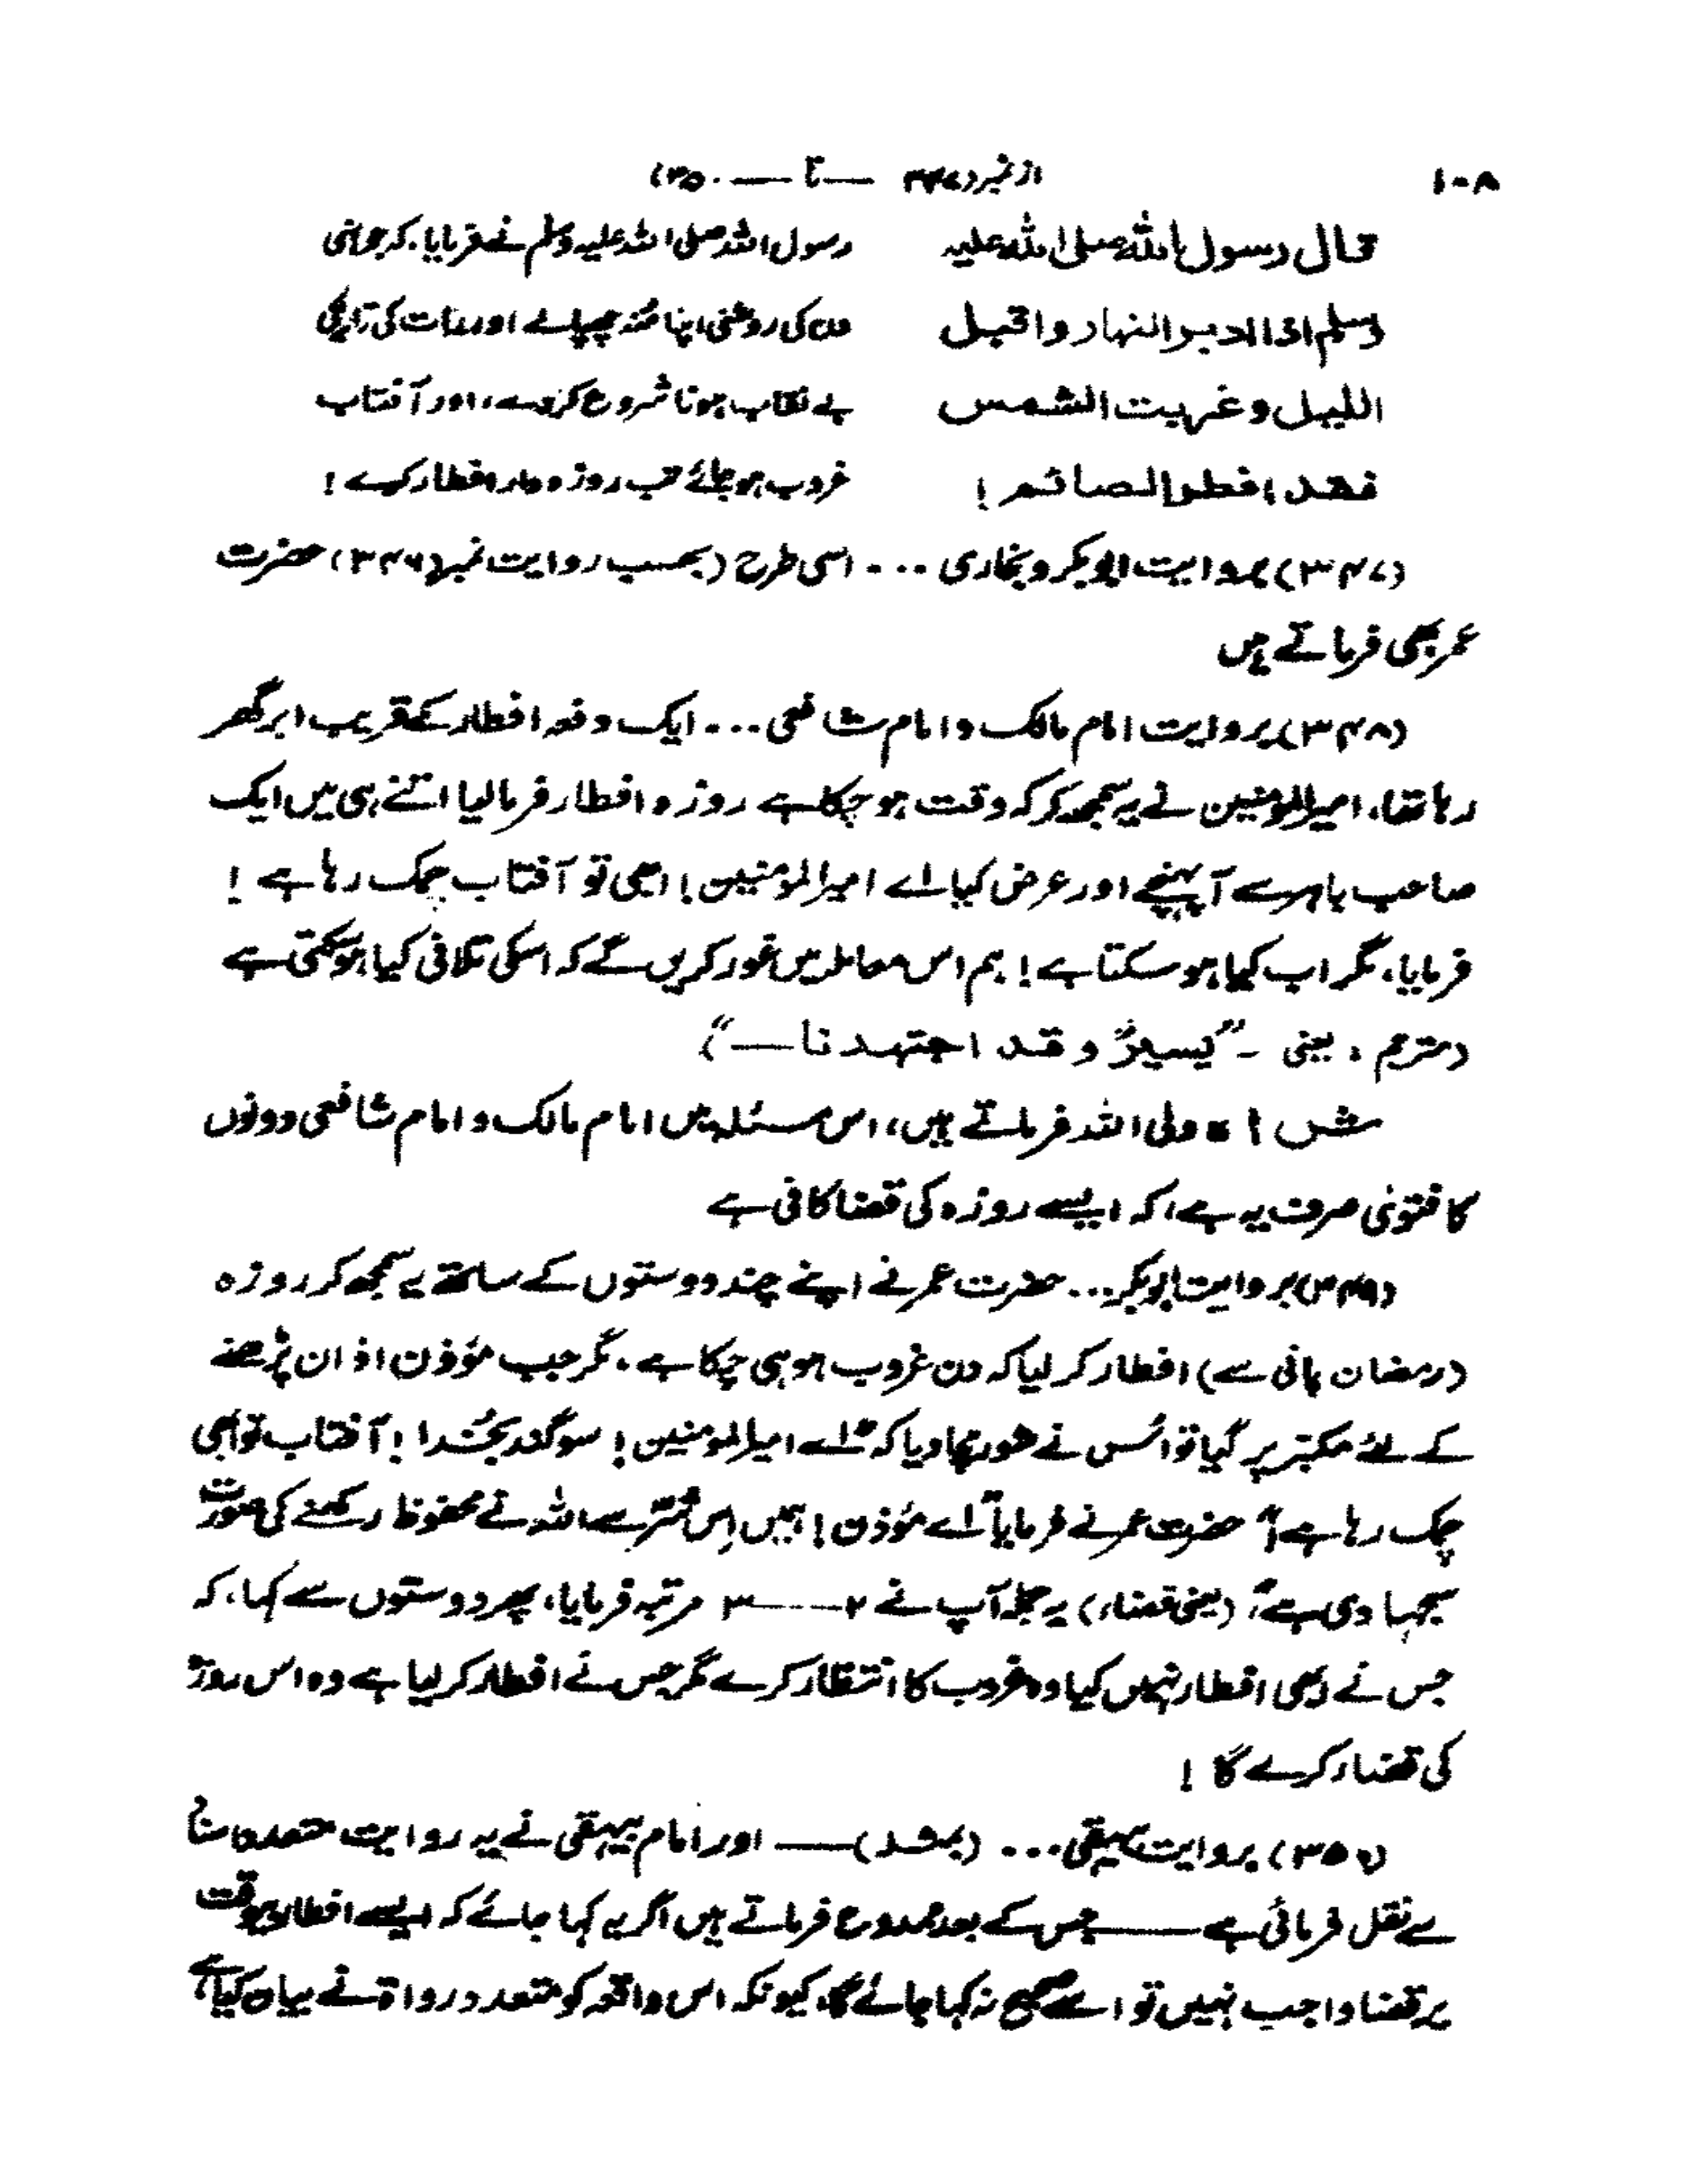 ۱۰۸
از نمبر (۳۴۷ — تا — ۳۵۰)
قال رسول اللہ صلی اللہ علیہ
رسول اللہ صلی اللہ علیہ وسلم نے فرمایا، کہ جونہی
وسلم اذا ادبر النہار واقبل
دن کی روشنی اپنا منہ چھپالے اور رات کی تاریکی
اللیل وغربت الشمس
بے نقاب ہونا شروع کردے، اور آفتاب
فقد افطر الصائم !
غروب ہوجائے تب روزہ دار افطار کرے !
(۳۴۷) بروایت ابوبکر و بخاری ... اسی طرح (بحسب روایت نمبر ۳۴۶) حضرت
عمر بھی فرماتے ہیں
(۳۴۸) بروایت امام مالک و امام شافعی ... ایک دفعہ افطار کے قریب ابر گھر
رہا تھا، امیرالمؤمنین نے یہ سمجھ کر کہ وقت ہوچکا ہے روزہ افطار فرمالیا اتنے ہی میں ایک
صاحب باہر سے آپہنچے اور عرض کیا اے امیرالمؤمنین ! ابھی تو آفتاب چمک رہا ہے !
فرمایا، مگر اب کیا ہوسکتا ہے ! ہم اس معاملہ میں غور کریں گے کہ اسکی تلافی کیا ہوسکتی ہے
(مترجم ، یعنی ۔ "یسیرٌ و قد اجتہدنا —")
ش ۱ ولی اللہ فرماتے ہیں، اس مسئلہ میں امام مالک و امام شافعی دونوں
کا فتویٰ صرف یہ ہے، کہ ایسے روزہ کی قضا کافی ہے
(۳۴۹) بروایت ابوبکر ... حضرت عمر نے اپنے چند دوستوں کے ساتھ یہ سمجھ کر روزہ
(رمضان پانی سے) افطار کر لیا کہ دن غروب ہو ہی چکا ہے . مگر جب مؤذن اذان پڑھنے
کے لئے مکبتر پر گیا تو اُس نے شور مچا دیا کہ "اے امیرالمومنین ! سوگند بخُدا ! آفتاب تو ابھی
چمک رہا ہے"! حضرت عمر نے فرمایا "اے مؤذن ! ہمیں اِس شر سے اللہ نے محفوظ رکھنے کی صورت
سجہا دی ہے"، (یعنی قضاء) یہ جملہ آپ نے ۲---۳ مرتبہ فرمایا، پھر دوستوں سے کہا، کہ
جس نے ابھی افطار نہیں کیا وہ غروب کا انتظار کرے مگر جس نے افطار کر لیا ہے وہ اس روزہ
کی قضاء کرے گا !
(۳۵۰) بروایت بیہقی ... — اور امام بیہقی نے یہ روایت متعدد
سے نقل فرمائی ہے — جس کے بعد ممدوح فرماتے ہیں اگر یہ کہا جائے کہ ایسے افطار بیوقت
پر قضا واجب نہیں تو اسے صحیح نہ کہا جائے گا، کیونکہ اس واقعہ کو متعدد رواۃ نے بیان کیا ہے،